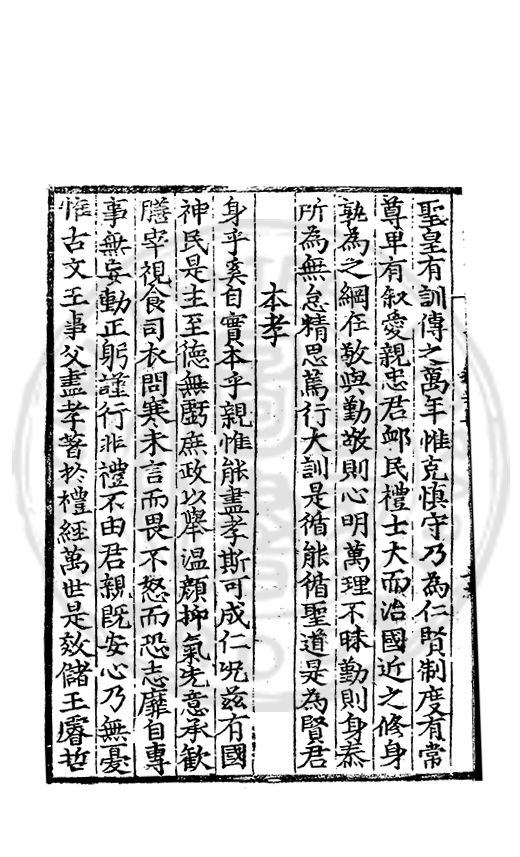 聖皇有訓傳之萬年惟克慎守乃為仁賢制度有常
尊卑有叙愛親忠君䘏民禮士大而治國近之修身
孰為之綱在敬與勤敬則心明萬理不昧勤則身泰
所為無怠精思篤行大訓是循能循聖道是為賢君
本孝
身乎奚自實本乎親惟能盡孝斯可成仁况兹有國
神民是主至德無虧庶政以舉温顔抑氣先意承歡
膳宰視食司衣問寒未言而畏不怒而恐志靡自專
事無妄動正躬謹行非禮不由君親既安心乃無憂
惟古文王事父盡孝著於禮經萬世是效儲王睿哲